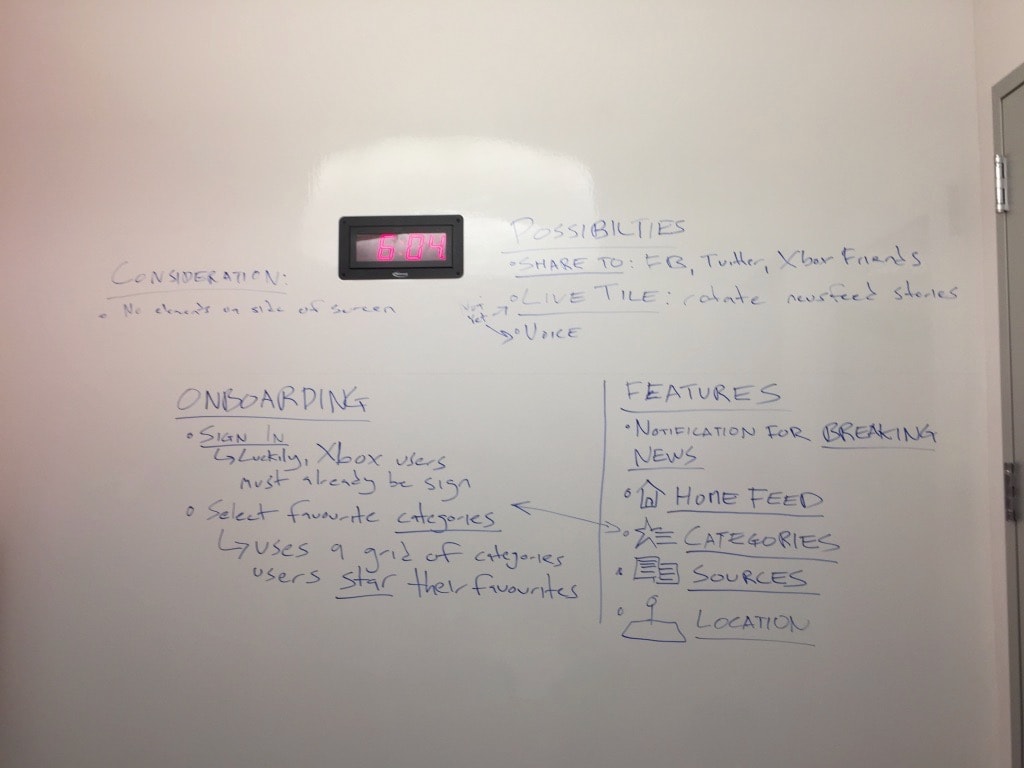 6:04
CONSIDERATION:
• No elements on side of screen
POSSIBILTIES
• SHARE TO: FB, Twitter, Xbox Friends
• LIVE TILE: rotate newsfeed stories
• VOICE
ONBOARDING
• SIGN IN
↳ Luckily, Xbox users
must already be sign
• Select favourite categories
↳ uses a grid of categories
users star their favourites
FEATURES
• NOTIFICATION FOR BREAKING
NEWS
• HOME FEED
• CATEGORIES
• SOURCES
• LOCATION